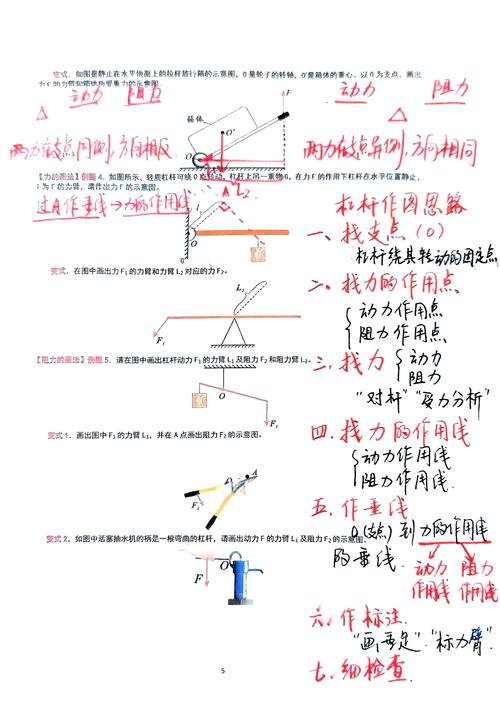 变式．如图是静止在水平地面上的拉杆旅行箱的示意图，O是轮子的转轴，O′是箱体的重心。以O为支点，画出
力F的力臂和箱体所受重力的示意图。
动力 阻力 动力 阻力
F
箱体
O′
O
两力在支点同侧，方向相反
两力在支点异侧，方向相同
【力的画法】例题4．如图所示，轻质杠杆可绕O点转动，杠杆上吊一重物G，在力F的作用下杠杆在水平位置静止，
L为F的力臂，请作出力F的示意图。
A
L₂
过A作垂线→力的作用线
l
O
变式．在图中画出力F₁的力臂和力臂L₂对应的力F₂。
L₂
F₁
【阻力的画法】例题5．请在图中画出杠杆动力F₁的力臂L₁及阻力F₂和阻力臂L₂。
F₁
变式1．画出图中F₁的力臂L₁，并在A点画出阻力F₂的示意图。
A
F₁
变式2．如图中活塞抽水机的柄是一根弯曲的杠杆，请画出动力F的力臂L及阻力F₂的示意图。
O
F
杠杆作图思路
一、找支点（O）
杠杆绕其转动的固定点
二、找力的作用点
动力作用点
阻力作用点
三、找力
动力
阻力
“对杆”“受力分析”
四、找力的作用线
动力作用线
阻力作用线
五、作垂线
O(支点)到力的作用线
的垂线
动力 阻力
作用线 作用线
六、作标注
“标力臂”
七、细检查
5